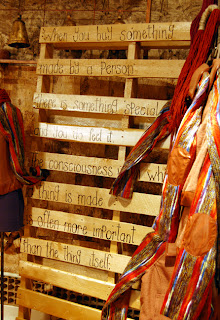 When you buy something
made by a Person
there is something special
and you do feel it.
the consciousness wh
Thing is made
is often more important
than the thing itself